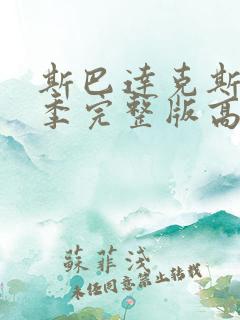 斯巴达克斯
季完整版高
蘇菲淺
未经同意禁止转载